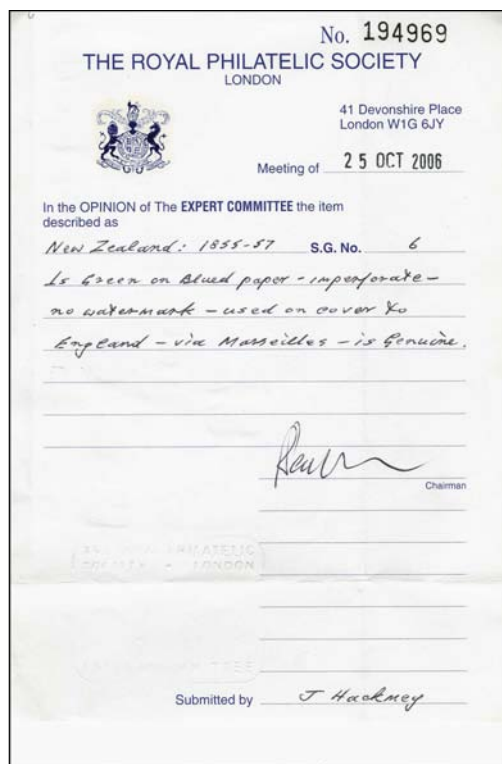 No. 194969
THE ROYAL PHILATELIC SOCIETY
LONDON
41 Devonshire Place
London W1G 6JY
Meeting of 25 OCT 2006
In the OPINION of The EXPERT COMMITTEE the item
described as
New Zealand: 1855-57 S.G. No. 6
1s Green on Blued paper - imperforate -
no watermark - used on cover to
England - via Marseilles - is Genuine.
Chairman
PHILATELIC
LONDON
Submitted by J Hackney